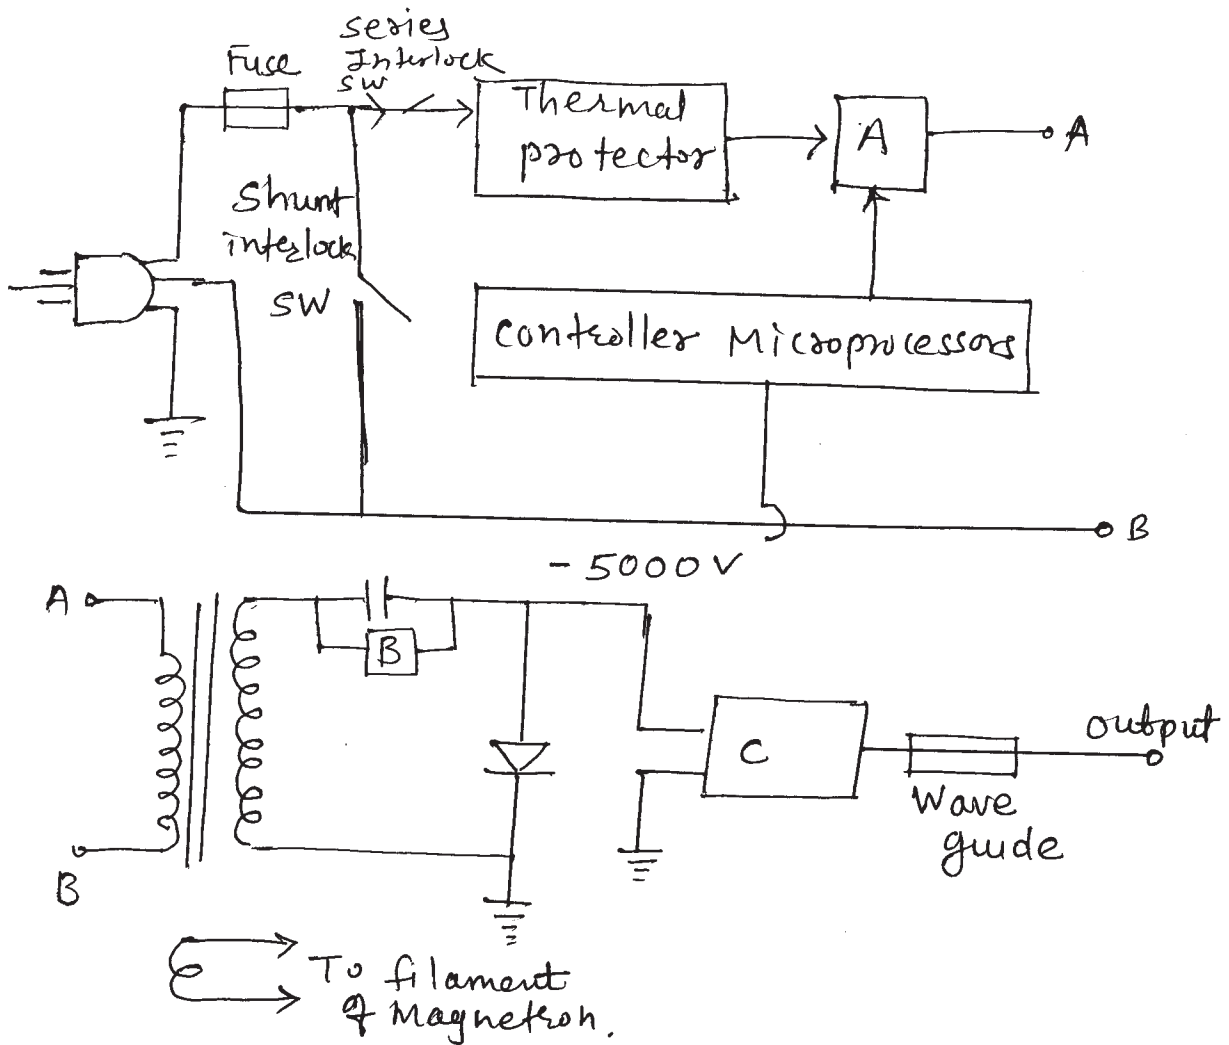 Fuse
series
Interlock
SW
Thermal
protector
A
A
Shunt
interlock
SW
Controller Microprocessors
B
- 5000 V
A
B
C
output
Wave
guide
B
To filament
of Magnetron.